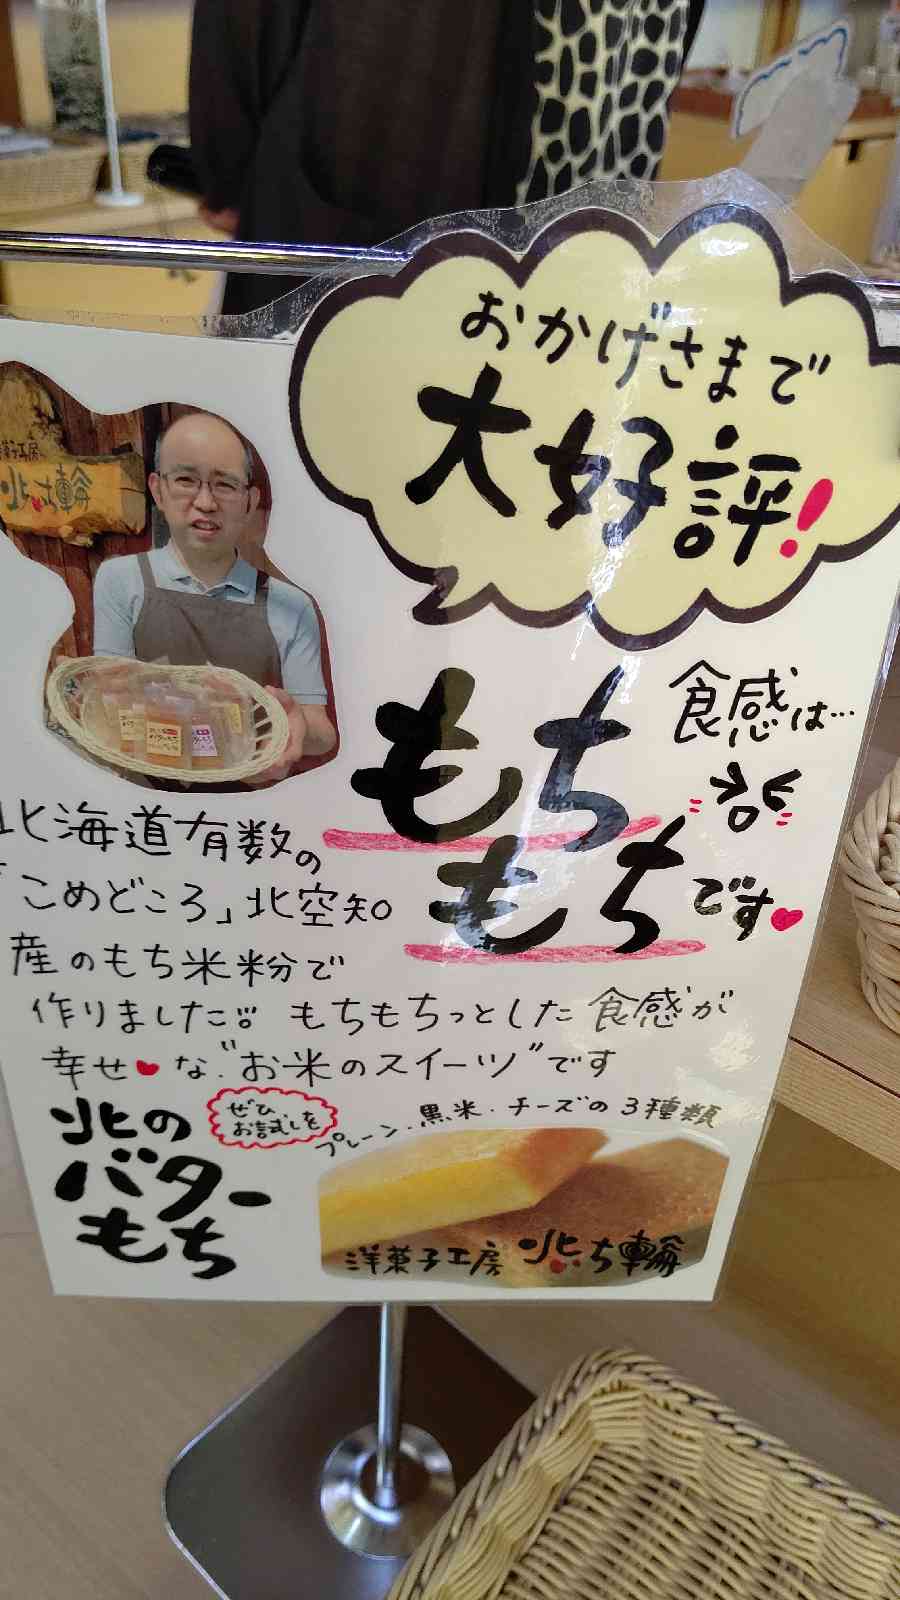 おかげさまで
大好評!
食感は…
もち
もち
です
北海道有数の
「こめどころ」北空知
産のもち米粉で
作りました。もちもちっとした食感が
幸せ♥な"お米のスイーツ"です
ぜひ
お試しを
プレーン・黒米・チーズの3種類
北の
バター
もち
洋菓子工房 北いち輪